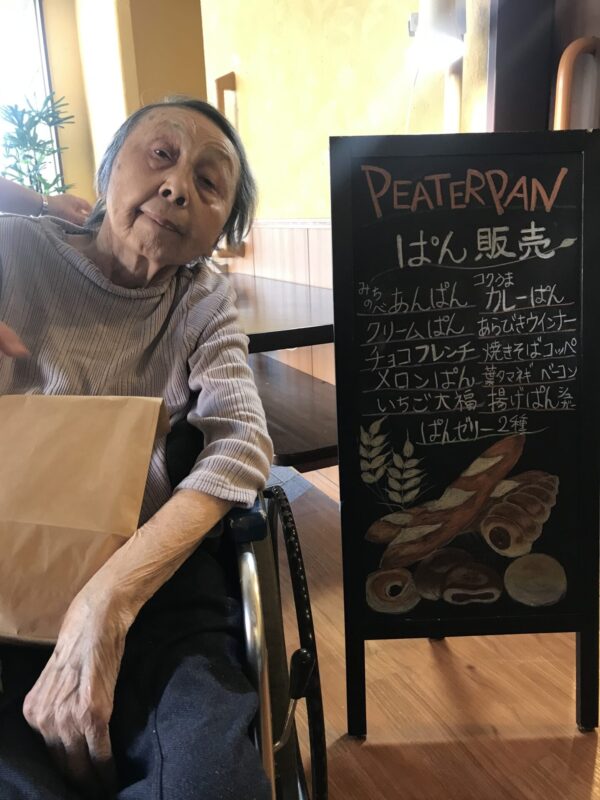 PEATERPAN
ぱん販売
みちのべ あんぱん コクうま カレーぱん
クリームぱん あらびきウインナー
チョコフレンチ 焼きそばコッペ
メロンぱん 葉タマネギ ベーコン
いちご大福 揚げぱん
ぱんゼリー 2種